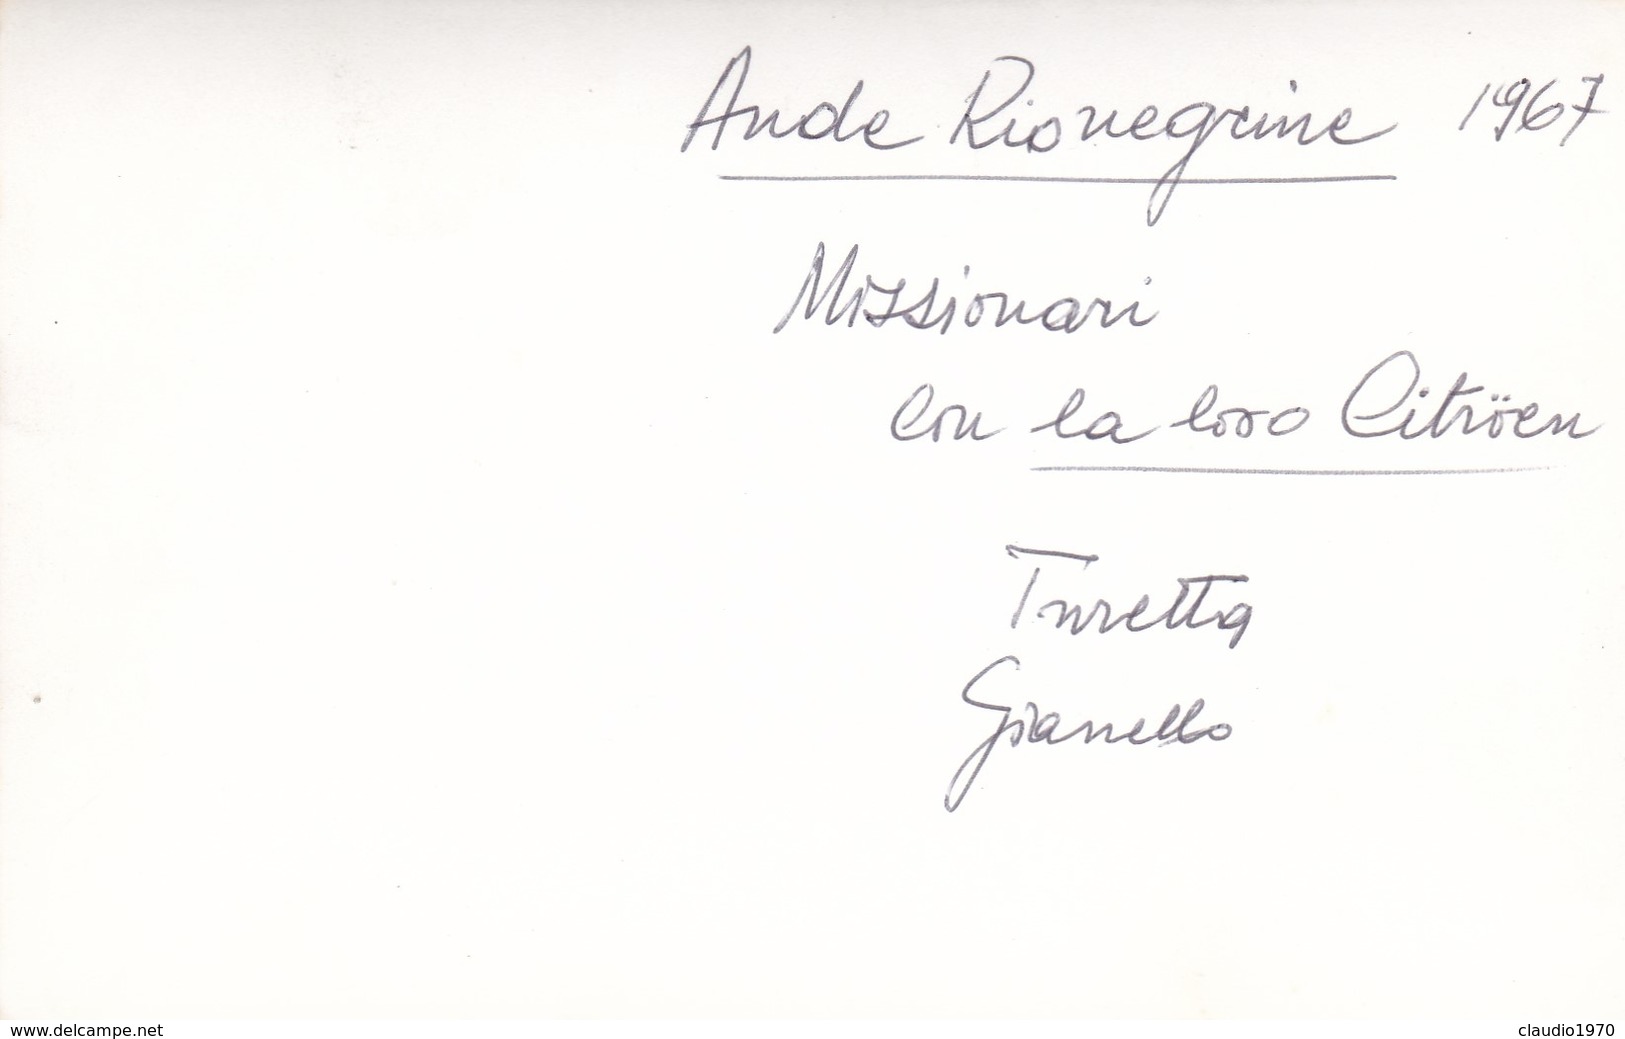 Ande Rionegrine 1967
Missionari
con la loro Citröen
Turetta
Gianello
www.delcampe.net claudio1970